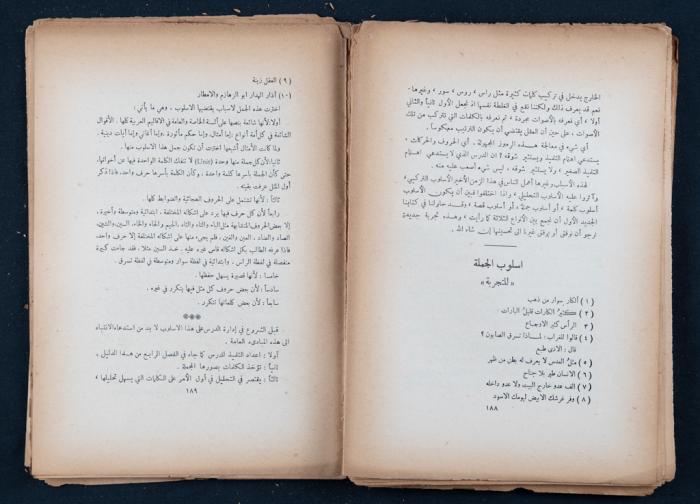 الخارج يدخل في تركيب كلمات كثيرة مثل راس ، روس ، سور ، وغيرها.
نعم قد يعرف ذلك ولكننا نقع في الغلطة نفسها اذ نجعل الأول ثانياً والثاني
أولا ، أي نعرفه بالأصوات مجردة ، ثم نعرفه بالكلمات التي تتركب من تلك
الأصوات ، على حين أن العقل يقتضي أن يكون الترتيب معكوساً .
أي شيء في معالجة هذه الرموز المجهولة ، أي الحروف والحركات
يستدعي اهتمام التلميذ ويستثير شوقه ؟ ان الدرس الذي لا يستدعي اهتمام
التلميذ الصغير ، ولا يستثير شوقه ، ليس شيء أصعب عليه منه .
لهذه الأسباب وغيرها أهمل الناس في هذا الزمن الأخير الأسلوب التركيبي ،
وآثروا عليه الأسلوب التحليلي ، واذا اختلفوا فبين أن يكون الأسلوب
أسلوب كلمة ، أو أسلوب جملة ، أو أسلوب قصة ، وقد حاولنا في كتابنا
الجديد الأول أن نجمع بين الأنواع الثلاثة كما رأيت ، وهذه تجربة جديدة
نرجو أن نوفق أو يوفق غيرنا الى تحسينها إن شاء الله .
اسلوب الجملة
« للتجربة »
(١) أفكار سوار من ذهب
(٢) كثير الكارات قليل البارات
(٣) الرأس كثير الاوجاع
(٤) قالوا للغراب : لماذا تسرق الصابون ؟
قال : الاذى طبع
(٥) مثل العدس لا يعرف له بطن من ظهر
(٦) الانسان طير بلا جناح
(٧) الف عدو خارج البيت ولا عدو داخله
(٨) وفر قرشك الابيض ليومك الاسود
١٨٨
(٩) العقل زينة
(١٠) آذار الهدار ابو الزلازل والامطار
اخترت هذه الجمل لأسباب يقتضيها الأسلوب ، وهي ما يأتي :
أولا : لأنها شائعة بنصها على ألسنة الخاصة والعامة في الاقاليم العربية كلها . الأقوال
الشائعة في كل أمة أنواع : إما أمثال ، وإما حكم مأثورة ، وإما أغاني ، وإما آيات دينية .
ولما كانت الأمثال أشيعها اخترت أن تكون جمل هذا الأسلوب منها .
ثانيا : لأن كل جملة منها وحدة (Unit) لا تنفك الكلمة الواحدة فيها عن أخواتها ،
حتى كأن الجملة بأسرها كلمة واحدة ، وكأن الكلمة بأسرها حرف واحد ، فاذا ذكر
أول المثل عرفت بقيته .
ثالثاً : لأنها تشتمل على الحروف الهجائية والضوابط كلها .
رابعاً : لأن كل حرف فيها يرد على أشكاله المختلفة ، ابتدائية ومتوسطة وأخيرة ،
إلا بعض الحروف المتشابهة مثل الباء والتاء والثاء ، الجيم والحاء والخاء ، السين والشين ،
الصاد والضاد ، العين والغين ، فلم يجيء منها على اشكاله المختلفة إلا حرف واحد ،
فاذا عرفه الطالب بكل اشكاله قاس غيره عليه . خذ السين مثلا ، فقد جاءت كبيرة
منفصلة في لفظة الراس . وابتدائية في لفظة سوار ومتوسطة في لفظة تسرق .
خامساً : لأنها قصيرة يسهل حفظها .
سادساً : لأن بعض حروف كل مثل فيها يتكرر في غيره .
سابعاً : لأن بعض كلماتها تتكرر .
***
قبل الشروع في إدارة الدرس على هذا الأسلوب لا بد من استدعاء الانتباه
الى هذه المبادىء العامة .
أولا : اعداد التلميذ للدرس كما جاء في الفصل الرابع من هذا الدليل ،
ثانياً : تؤخذ الكلمات بصورها المجملة .
ثالثاً : يقتصر في التحليل في أول الأمر على الكلمات التي يسهل تحليلها ،
١٨٩